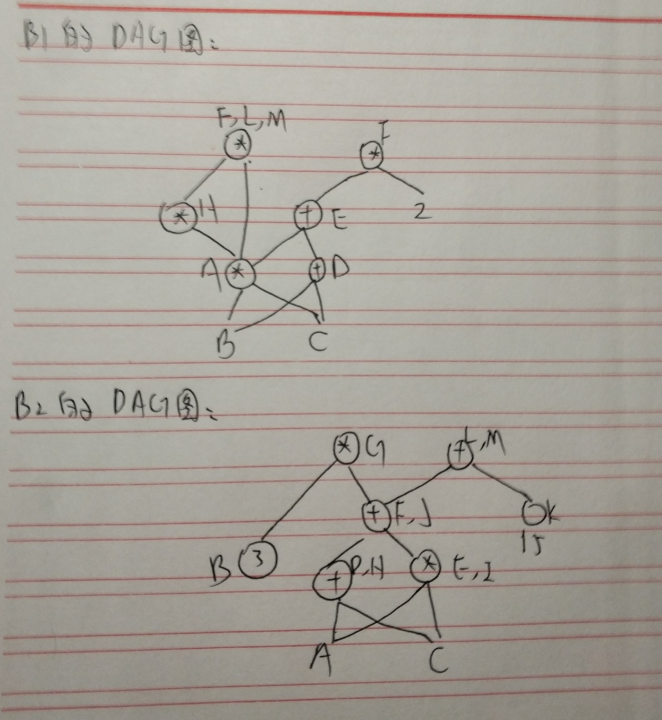 B1的DAG图:
F,L,M
*
I
*
* H
+ E
2
A *
+ D
B
C
B2的DAG图:
* G
+ L,M
+ F,J
K
15
B 3
+ D,H
* E,I
A
C